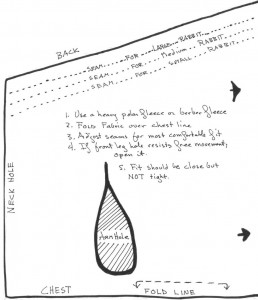 BACK
SEAM FOR LARGE RABBIT
SEAM FOR Medium RABBIT
SEAM FOR SMALL RABBIT
1. Use a heavy polar fleece or berber fleece
2. Fold Fabric over chest line.
3. Adjust seams for most comfortable fit
4. If front leg hole resists free movement,
open it.
5. Fit should be close but
NOT tight.
NECK HOLE
Arm Hole
CHEST
FOLD LINE